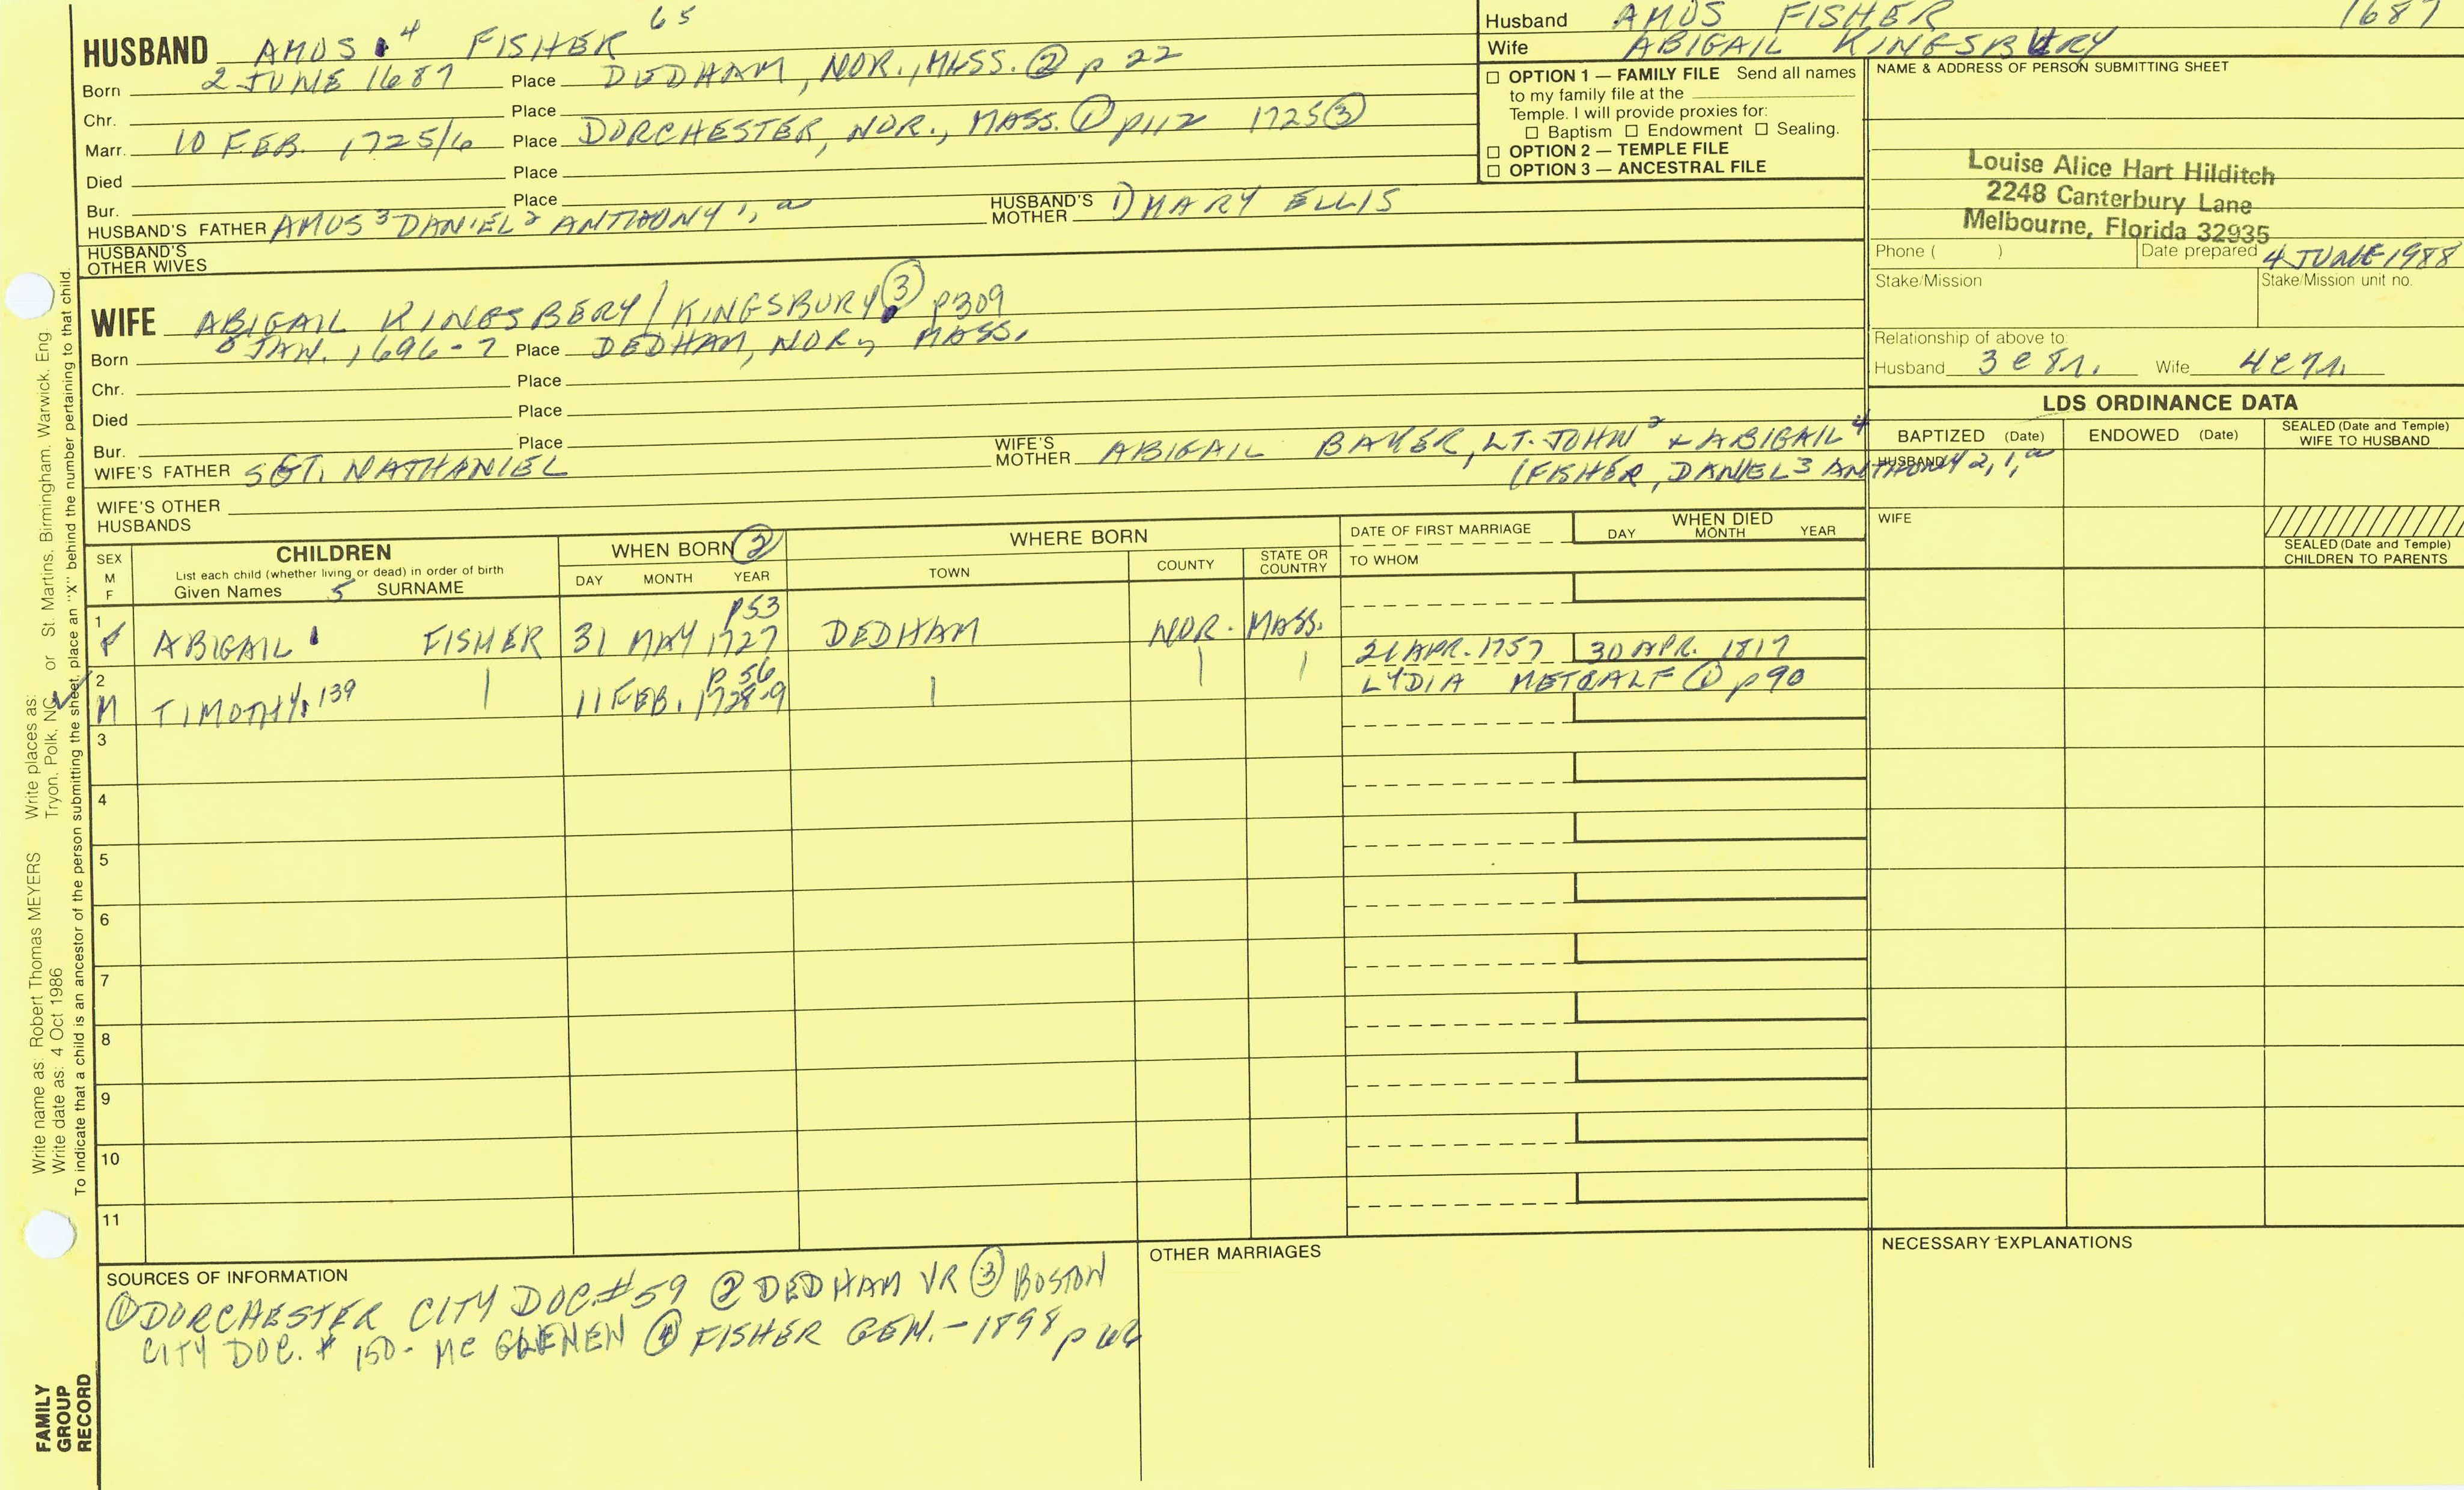 HUSBAND AMOS 4 FISHER 65
Born 2 JUNE 1687 Place DEDHAM, NOR., MASS. ② p 22
Chr. Place
Marr. 10 FEB. 1725/6 Place DORCHESTER, NOR., MASS. ① p112 1725 ③
Died Place
Bur. Place
HUSBAND'S FATHER AMOS 3 DANIEL 2 ANTHONY 1, a HUSBAND'S MOTHER 1) MARY ELLIS
HUSBAND'S OTHER WIVES
Husband AMOS FISHER 1687
Wife ABIGAIL KINGSBURY
☐ OPTION 1 — FAMILY FILE Send all names
to my family file at the
Temple. I will provide proxies for:
☐ Baptism ☐ Endowment ☐ Sealing.
☐ OPTION 2 — TEMPLE FILE
☐ OPTION 3 — ANCESTRAL FILE
NAME & ADDRESS OF PERSON SUBMITTING SHEET
Louise Alice Hart Hilditch
2248 Canterbury Lane
Melbourne, Florida 32935
Phone ( ) Date prepared 4 JUNE 1988
Stake/Mission Stake/Mission unit no.
Relationship of above to:
Husband 3 C 8 r. Wife 4 C 7 r.
WIFE ABIGAIL KINGSBERY/KINGSBURY ③ p309
Born 8 JAN. 1696-7 Place DEDHAM, NOR., MASS.
Chr. Place
Died Place
Bur. Place
WIFE'S FATHER SGT. NATHANIEL WIFE'S MOTHER ABIGAIL BAKER, LT. JOHN 2 + ABIGAIL 4
(FISHER, DANIEL 3 ANTHONY 2, 1, a
WIFE'S OTHER HUSBANDS
LDS ORDINANCE DATA
BAPTIZED (Date) ENDOWED (Date) SEALED (Date and Temple) WIFE TO HUSBAND
HUSBAND
WIFE
SEALED (Date and Temple) CHILDREN TO PARENTS
SEX M F CHILDREN WHEN BORN ② WHERE BORN DATE OF FIRST MARRIAGE WHEN DIED
List each child (whether living or dead) in order of birth
Given Names 5 SURNAME DAY MONTH YEAR TOWN COUNTY STATE OR COUNTRY TO WHOM DAY MONTH YEAR
p53
1 F ABIGAIL FISHER 31 MAY 1727 DEDHAM NOR. MASS.
p 56 21 APR. 1757 30 APR. 1817
2 M TIMOTHY 139 11 FEB. 1728-9 LYDIA METCALF ① p 90
3
4
5
6
7
8
9
10
11
SOURCES OF INFORMATION
① DORCHESTER CITY DOC. #59 ② DEDHAM VR ③ BOSTON
CITY DOC. # 150 - MC GLENEN ④ FISHER GEN. - 1898 p
OTHER MARRIAGES
NECESSARY EXPLANATIONS
Write name as: Robert Thomas MEYERS Write places as: Tryon, Polk, NC or St. Martins, Birmingham, Warwick, Eng
Write date as: 4 Oct 1986
To indicate that a child is an ancestor of the person submitting the sheet, place an "X" behind the number pertaining to that child.
FAMILY
GROUP
RECORD